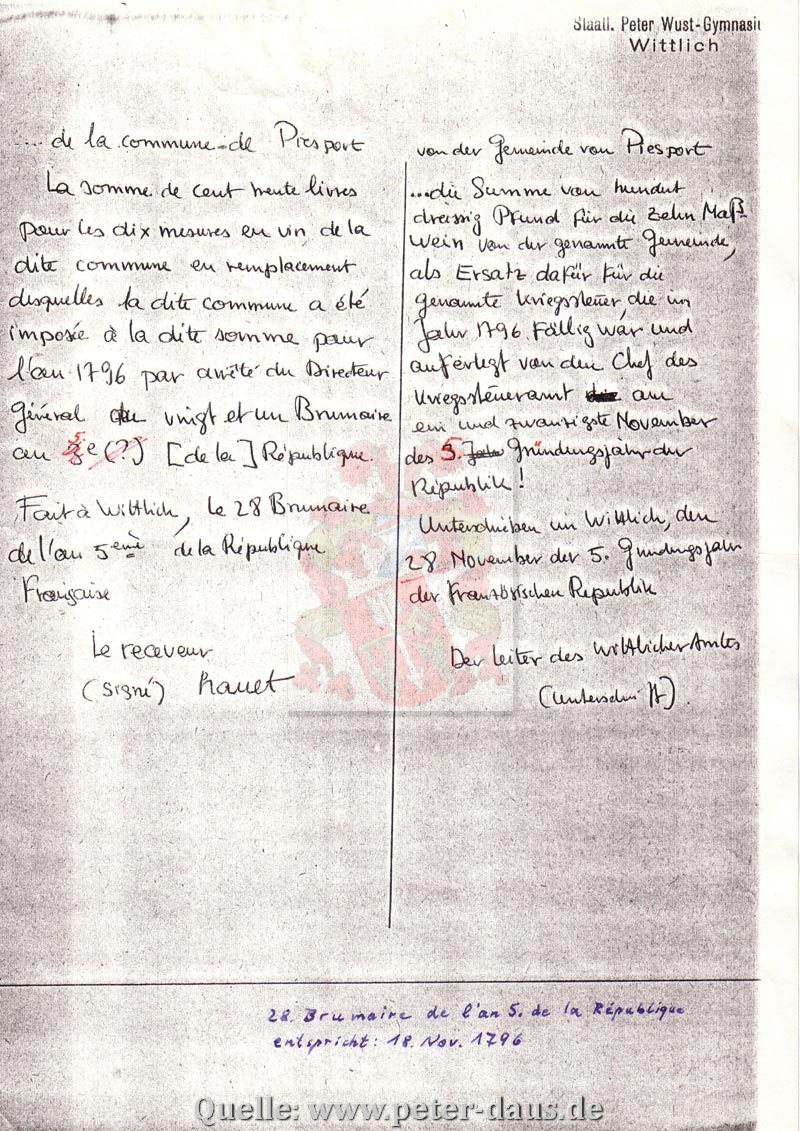 Staatl. Peter Wust-Gymnasiu
Wittlich
... de la commune de Piesport
La somme de cent trente livres
pour les dix mesures en vin de la
dite commune en remplacement
desquelles la dite commune a été
imposée à la dite somme pour
l'an 1796 par arrêté du Directeur
Général du vingt et un Brumaire
an 5e (?) [de la] République.
Fait à Wittlich, le 28 Brumaire
de l'an 5eme de la République
Française
Le receveur
(signé)
von der Gemeinde von Piesport
...die Summe von hundert
dreissig Pfund für die zehn Maß
Wein von der genannte Gemeinde,
als Ersatz dafür für die
genannte Kriegssteuer, die im
Jahr 1796 fällig war und
auferlegt von den Chef des
Kriegssteueramt am
ein und zwanzigste November
des 5. Gründungsjahr der
Republik!
Unterschrieben im Wittlich, den
28 November der 5. Gründungsjahr
der Französischen Republik
Der Leiter des Wittlicher Amtes
(Unterschrift)
28. Brumaire de l'an 5. de la République
entspricht: 18. Nov. 1796
Quelle: www.peter-daus.de